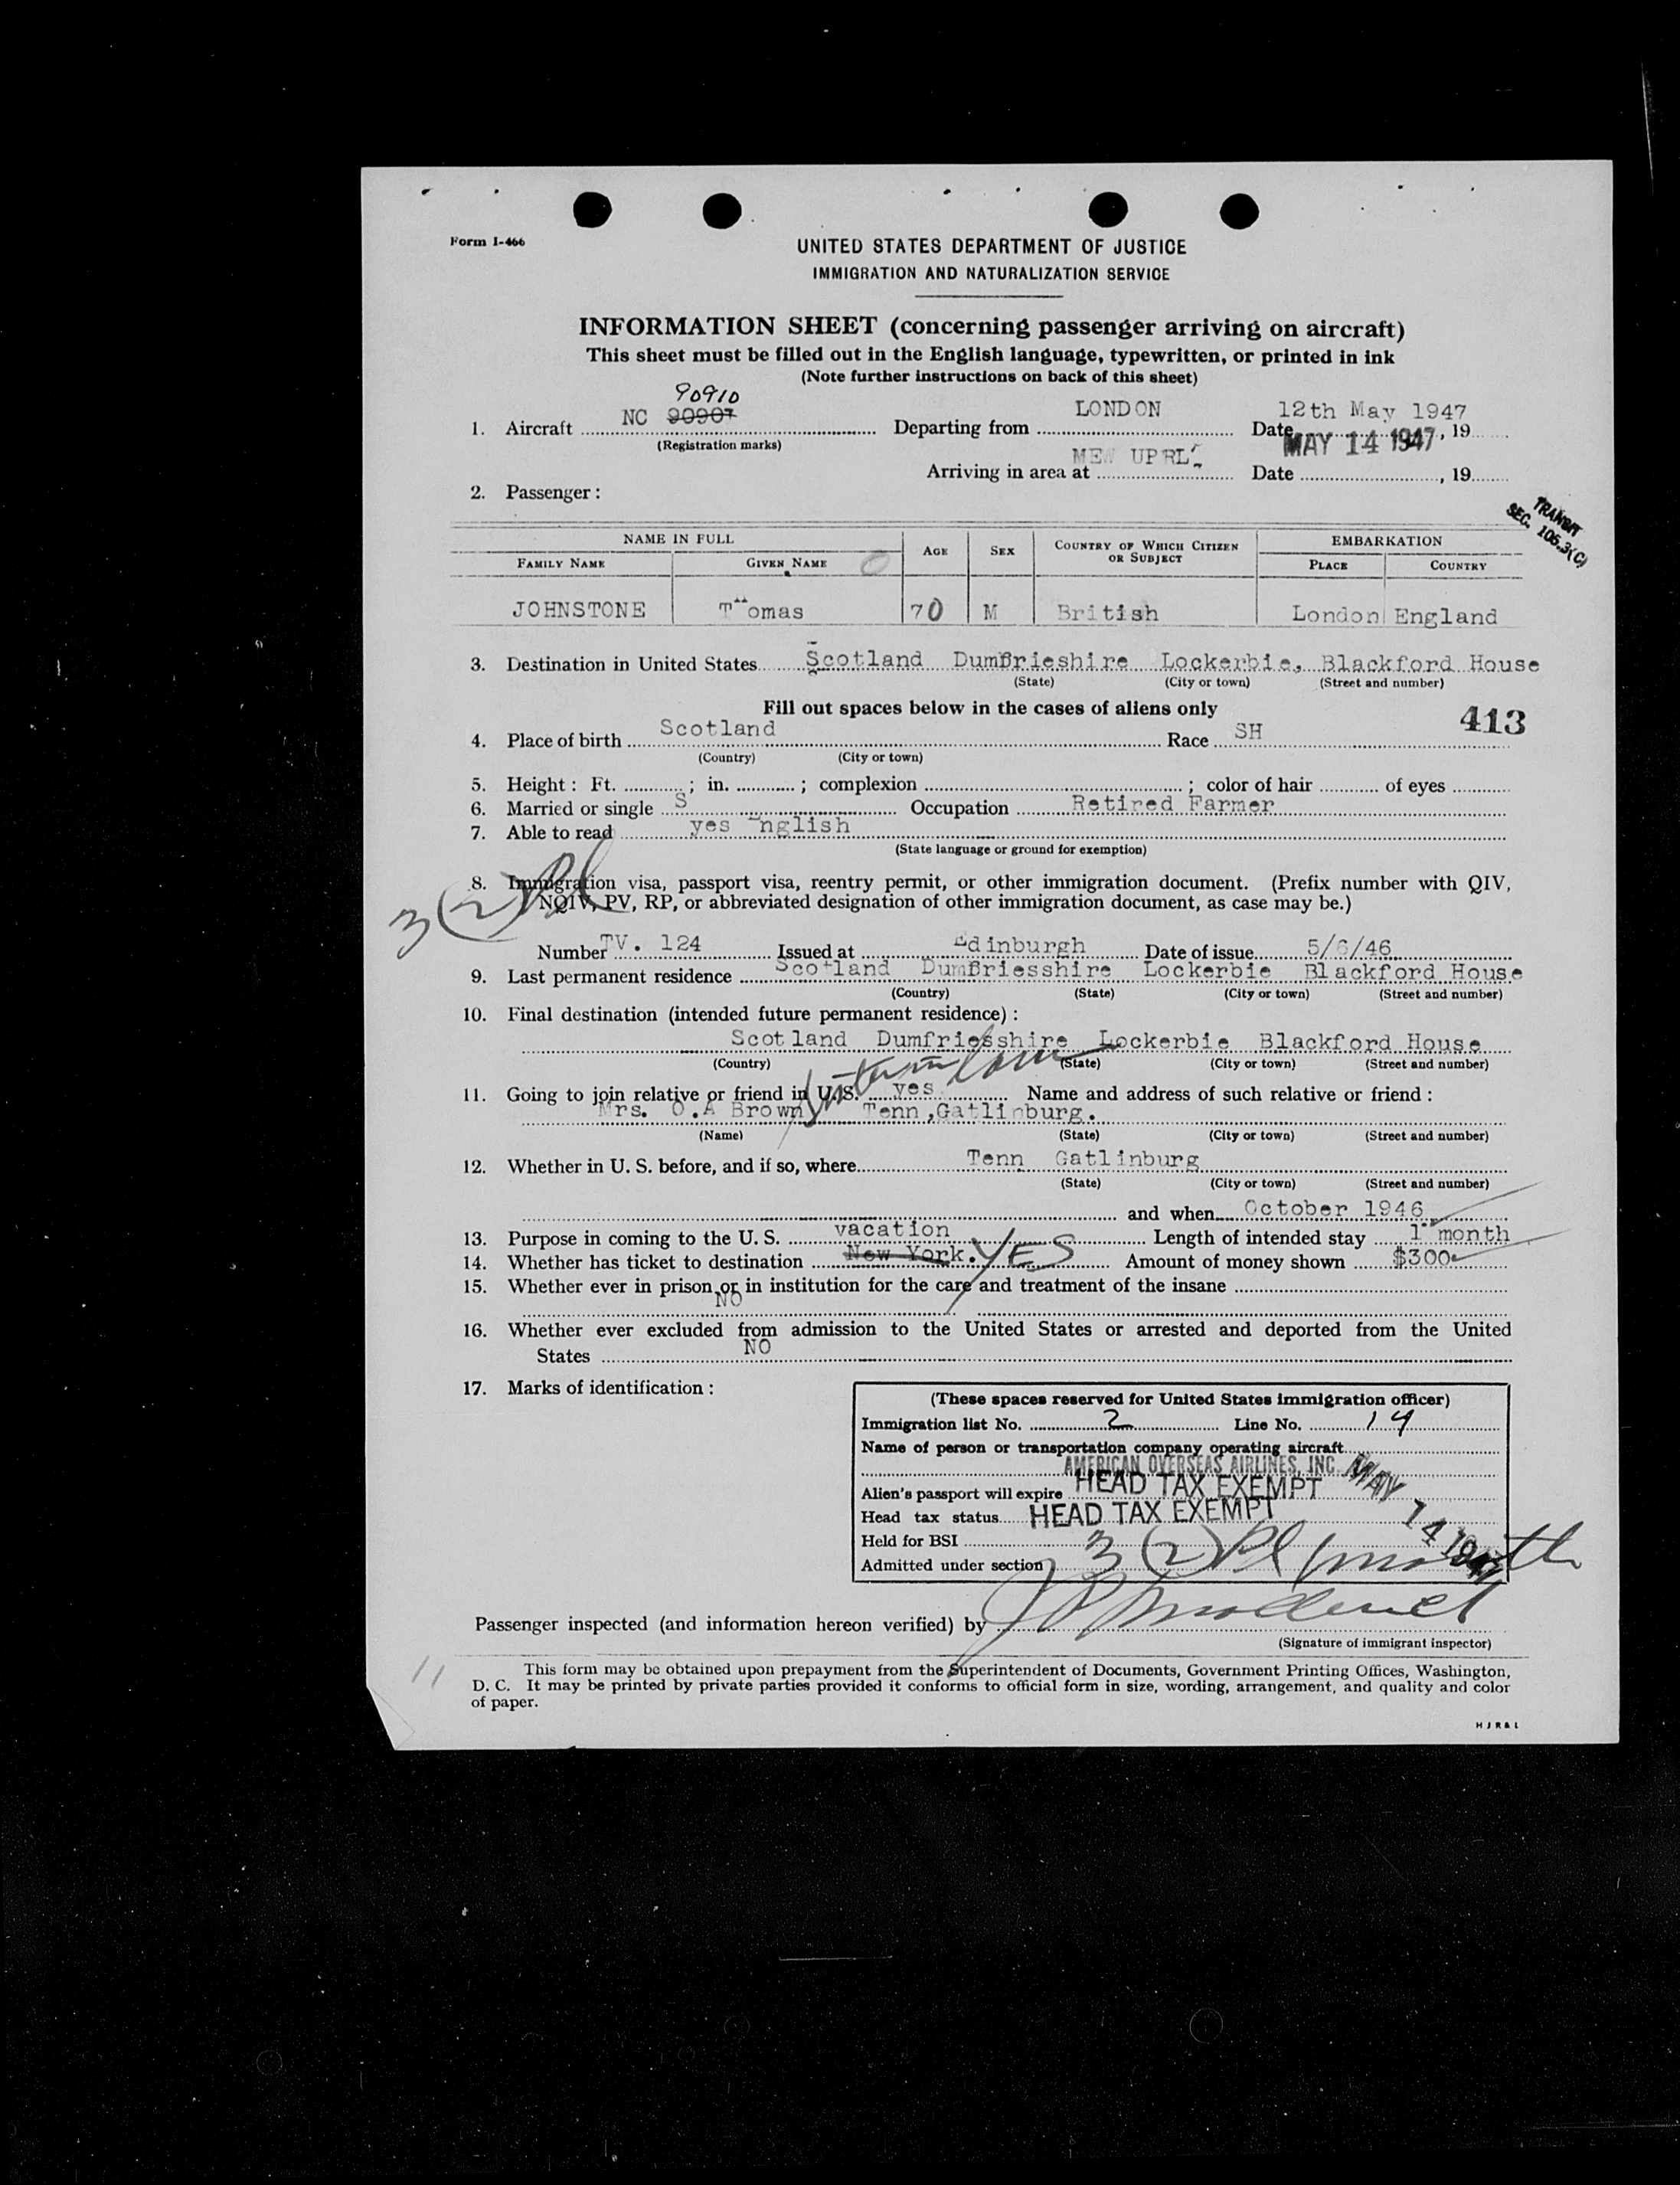 Form I-466
UNITED STATES DEPARTMENT OF JUSTICE
IMMIGRATION AND NATURALIZATION SERVICE
INFORMATION SHEET (concerning passenger arriving on aircraft)
This sheet must be filled out in the English language, typewritten, or printed in ink
(Note further instructions on back of this sheet)
90910
1. Aircraft NC 90907 Departing from LONDON Date 12th May 1947, 19
(Registration marks) MAY 14 1947
Arriving in area at Date , 19
2. Passenger:
TRANSIT
SEC. 106.3(C)
NAME IN FULL AGE SEX COUNTRY OF WHICH CITIZEN OR SUBJECT EMBARKATION
FAMILY NAME GIVEN NAME PLACE COUNTRY
JOHNSTONE Thomas 70 M British London England
3. Destination in United States Scotland Dumfrieshire Lockerbie, Blackford House
(State) (City or town) (Street and number)
Fill out spaces below in the cases of aliens only
413
4. Place of birth Scotland Race SH
(Country) (City or town)
5. Height: Ft. ; in. ; complexion ; color of hair of eyes
6. Married or single S Occupation Retired Farmer
7. Able to read yes English
(State language or ground for exemption)
8. Immigration visa, passport visa, reentry permit, or other immigration document. (Prefix number with QIV,
NQIV, PV, RP, or abbreviated designation of other immigration document, as case may be.)
3(2)
Number TV. 124 Issued at Edinburgh Date of issue 5/6/46
9. Last permanent residence Scotland Dumfriesshire Lockerbie Blackford House
(Country) (State) (City or town) (Street and number)
10. Final destination (intended future permanent residence):
Scotland Dumfriesshire Lockerbie Blackford House
(Country) (State) (City or town) (Street and number)
11. Going to join relative or friend in U.S. yes Name and address of such relative or friend:
Mrs. O.A Brown Tenn,Gatlinburg.
(Name) (State) (City or town) (Street and number)
12. Whether in U. S. before, and if so, where Tenn Gatlinburg
(State) (City or town) (Street and number)
and when October 1946
13. Purpose in coming to the U. S. vacation Length of intended stay 1 month
14. Whether has ticket to destination New York. YES Amount of money shown $300
15. Whether ever in prison or in institution for the care and treatment of the insane
NO
16. Whether ever excluded from admission to the United States or arrested and deported from the United
States NO
17. Marks of identification:
(These spaces reserved for United States immigration officer)
Immigration list No. 2 Line No. 14
Name of person or transportation company operating aircraft
AMERICAN OVERSEAS AIRLINES, INC.
Alien's passport will expire HEAD TAX EXEMPT MAY 14 1947
Head tax status HEAD TAX EXEMPT
Held for BSI
Admitted under section 3(2) Pl 1 month
Passenger inspected (and information hereon verified) by
(Signature of immigrant inspector)
11
This form may be obtained upon prepayment from the Superintendent of Documents, Government Printing Offices, Washington,
D. C. It may be printed by private parties provided it conforms to official form in size, wording, arrangement, and quality and color
of paper.
H J R & L